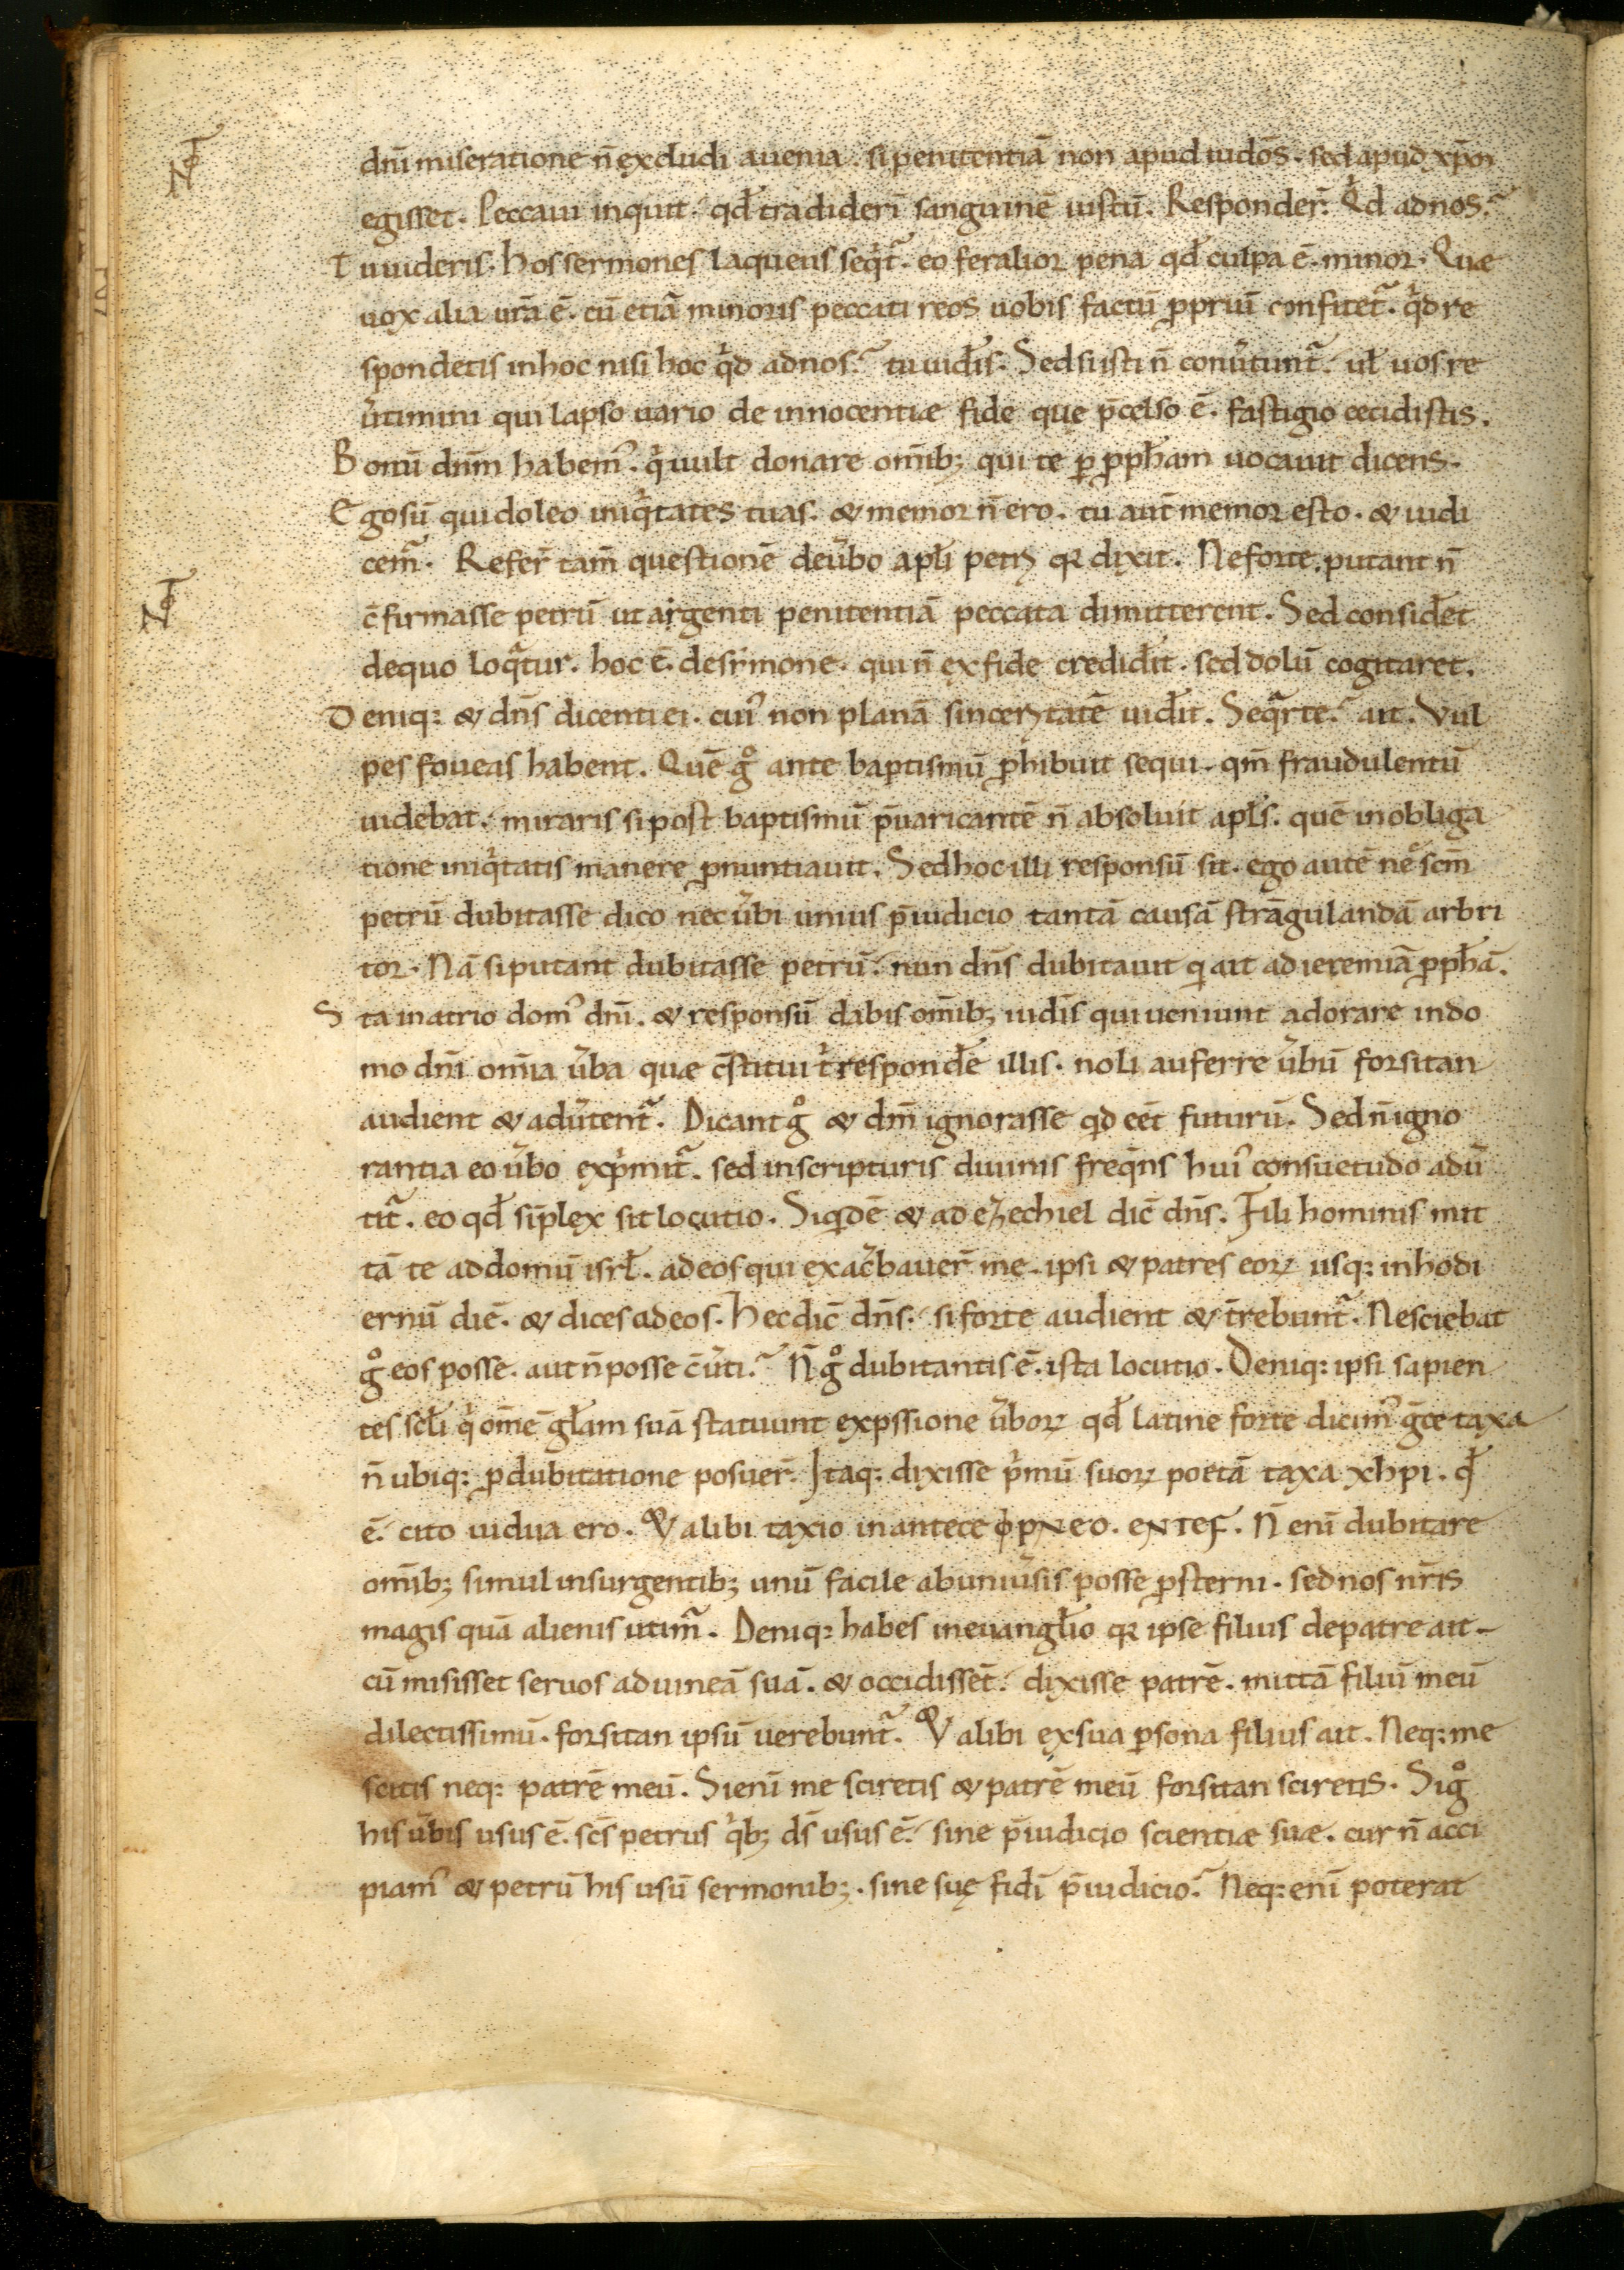 dn̄i miseratione n̄ excludi a uenia . si penitentiā non apud iudōs . sed apud xp̄m
egisset . Peccaui inquit qd̄ tradiderī sanguinē iustū . Responder̄ . Qd ad nos?
Tu uideris . hos sermones laqueus seqt̄ . eo feralior pena qd̄ culpa ē . minor . Quæ
uox alia ur̄a ē . cū etiā minoris peccati reos uobis factū ꝓpriū confitet̄ . qd re
spondetis in hoc nisi hoc qd ad nos? tu uid̄is . Sed si isti n̄ conūtunt̄ . ul̄ uos re
ūtimini qui lapso uario de innocentiæ fide que p̄celso ē . fastigio cecidistis .
Bonū dn̄m habem᾽ . q uult donare om̄ib; qui te ꝑ ꝓph̄am uocauit dicens .
Ego sū qui doleo iniqtates tuas . & memor n̄ ero . tu aut̄ memor esto . & iudi
cem̄ . Refer̄ tam̄ questionē de ūbo apl̄i petri qꝛ dixit . Ne forte . putant n̄
c̄firmasse petrū ut argenti penitentiā peccata dimitterent . Sed consid̄et
de quo loqtur . hoc ē . de sīmone . qui n̄ ex fide credid̄it . sed dolū cogitaret .
Deniq: & dn̄s dicenti ei . cui᾽ non planā sinceritatē uid̄it . Seqr te? ait . Vul
pes foueas habent . Quē g° ante baptismū ꝓhibuit sequi . qm̄ fraudulentū
uidebat . miraris si post baptismū p̄uaricantē n̄ absoluit apl̄s . quē in obliga
tione iniqtatis manere ꝓnuntiauit . Sed hoc illi responsū sit . ego autē ne scm̄
petrū dubitasse dico nec ūbi unius p̄iudicio tantā causā strāgulandā arbri
tor . Nā si putant dubitasse petrū . nun dn̄s dubitauit q ait ad ieremiā ꝓph̄ā .
Sta in atrio dom᾽ dn̄i . & responsū dabis om̄ib; iud̄is qui ueniunt adorare in do
mo dn̄i om̄ia ūba quæ c̄stitui t̄ respond̄e illis . noli auferre ūbū forsitan
audient & adūtent̄ . Dicant g° & dm̄ ignorasse qd eēt futurū . Sed n̄ igno
rantia eo ūbo exprmit̄ . sed in scripturis diuinis freqns hui᾽ consuetudo adū
tit̄ . eo qd̄ sip̄lex sit locutio . Siqdē & ad ezechiel dic̄ dn̄s . Fili hominis mit
tā te ad domū isrl̄ . ad eos qui exac̄bauer̄ me . ipsi & patres eoꝝ usq: in hodi
ernū diē . & dices ad eos . hec dic̄ dn̄s . si forte audient & t̄rebunt̄ . Nesciebat
g° eos posse . aut n̄ posse c̄ūti? N̄ g° dubitantis ē . ista locutio . Deniq: ipsi sapien
tes scl̄i q om̄ē gl̄am suā statuunt exp̄ssione ūboꝝ qd̄ latine forte dicim᾽ gc̄e taxa
n̄ ubiq: ꝓ dubitatione posuer̄ . Itaq: dixisse pmū suoꝝ poetā taxa xhpi . qd̄
ē . cito uidua ero . & alibi taxio in antece φpneo . entes . N̄ enī dubitare
om̄ib; simul insurgentib; unū facile ab uniūsis posse ꝓsterni . sed nos nr̄is
magis quā alienis utim̄ . Deniq: habes in euangl̄io qꝛ ipse filius de patre ait
cū misisset seruos ad uineā suā . & occidissēt . dixisse patrē . mittā filiū meū
dilectissimū . forsitan ipsū uerebunt̄ . & alibi ex sua ꝑsona filius ait . Neq: me
scitis neq: patrē meū . Si enī me sciretis & patrē meū forsitan sciretis . Si g°
his ūbis usus ē . scs̄ petrus qb; ds̄ usus ē . sine p̄iudicio scientiæ suæ . cur n̄ acci
piam᾽ & petrū his usū sermonib; . sine suę fidī p̄iudicio? Neq: enī poterat